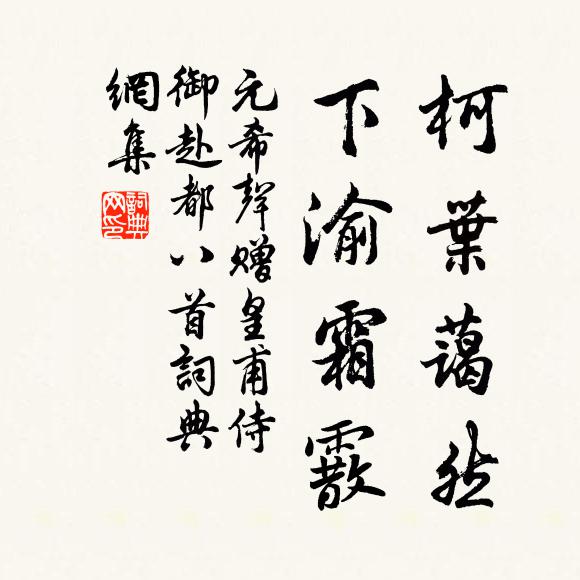 柯葉藹然
下渝霜霰
元希聲贈皇甫侍
御赴都八首詞典
網集
詞典
网印